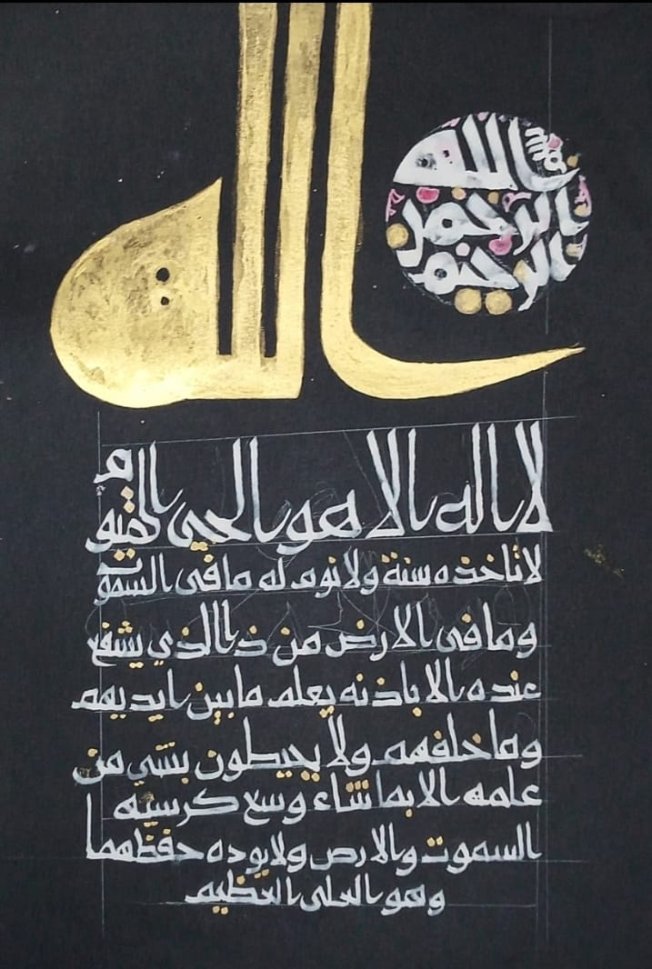 بسم الله
الرحمن
الرحيم
الله
لا اله الا هو الحي القيوم
لا تاخذه سنة ولا نوم له ما فى السموت
وما فى الارض من ذا الذي يشفع
عنده الا باذنه يعلم ما بين ايديهم
وما خلفهم ولا يحيطون بشي من
علمه الا بما شاء وسع كرسيه
السموت والارض ولا يوده حفظهما
وهو العلى العظيم